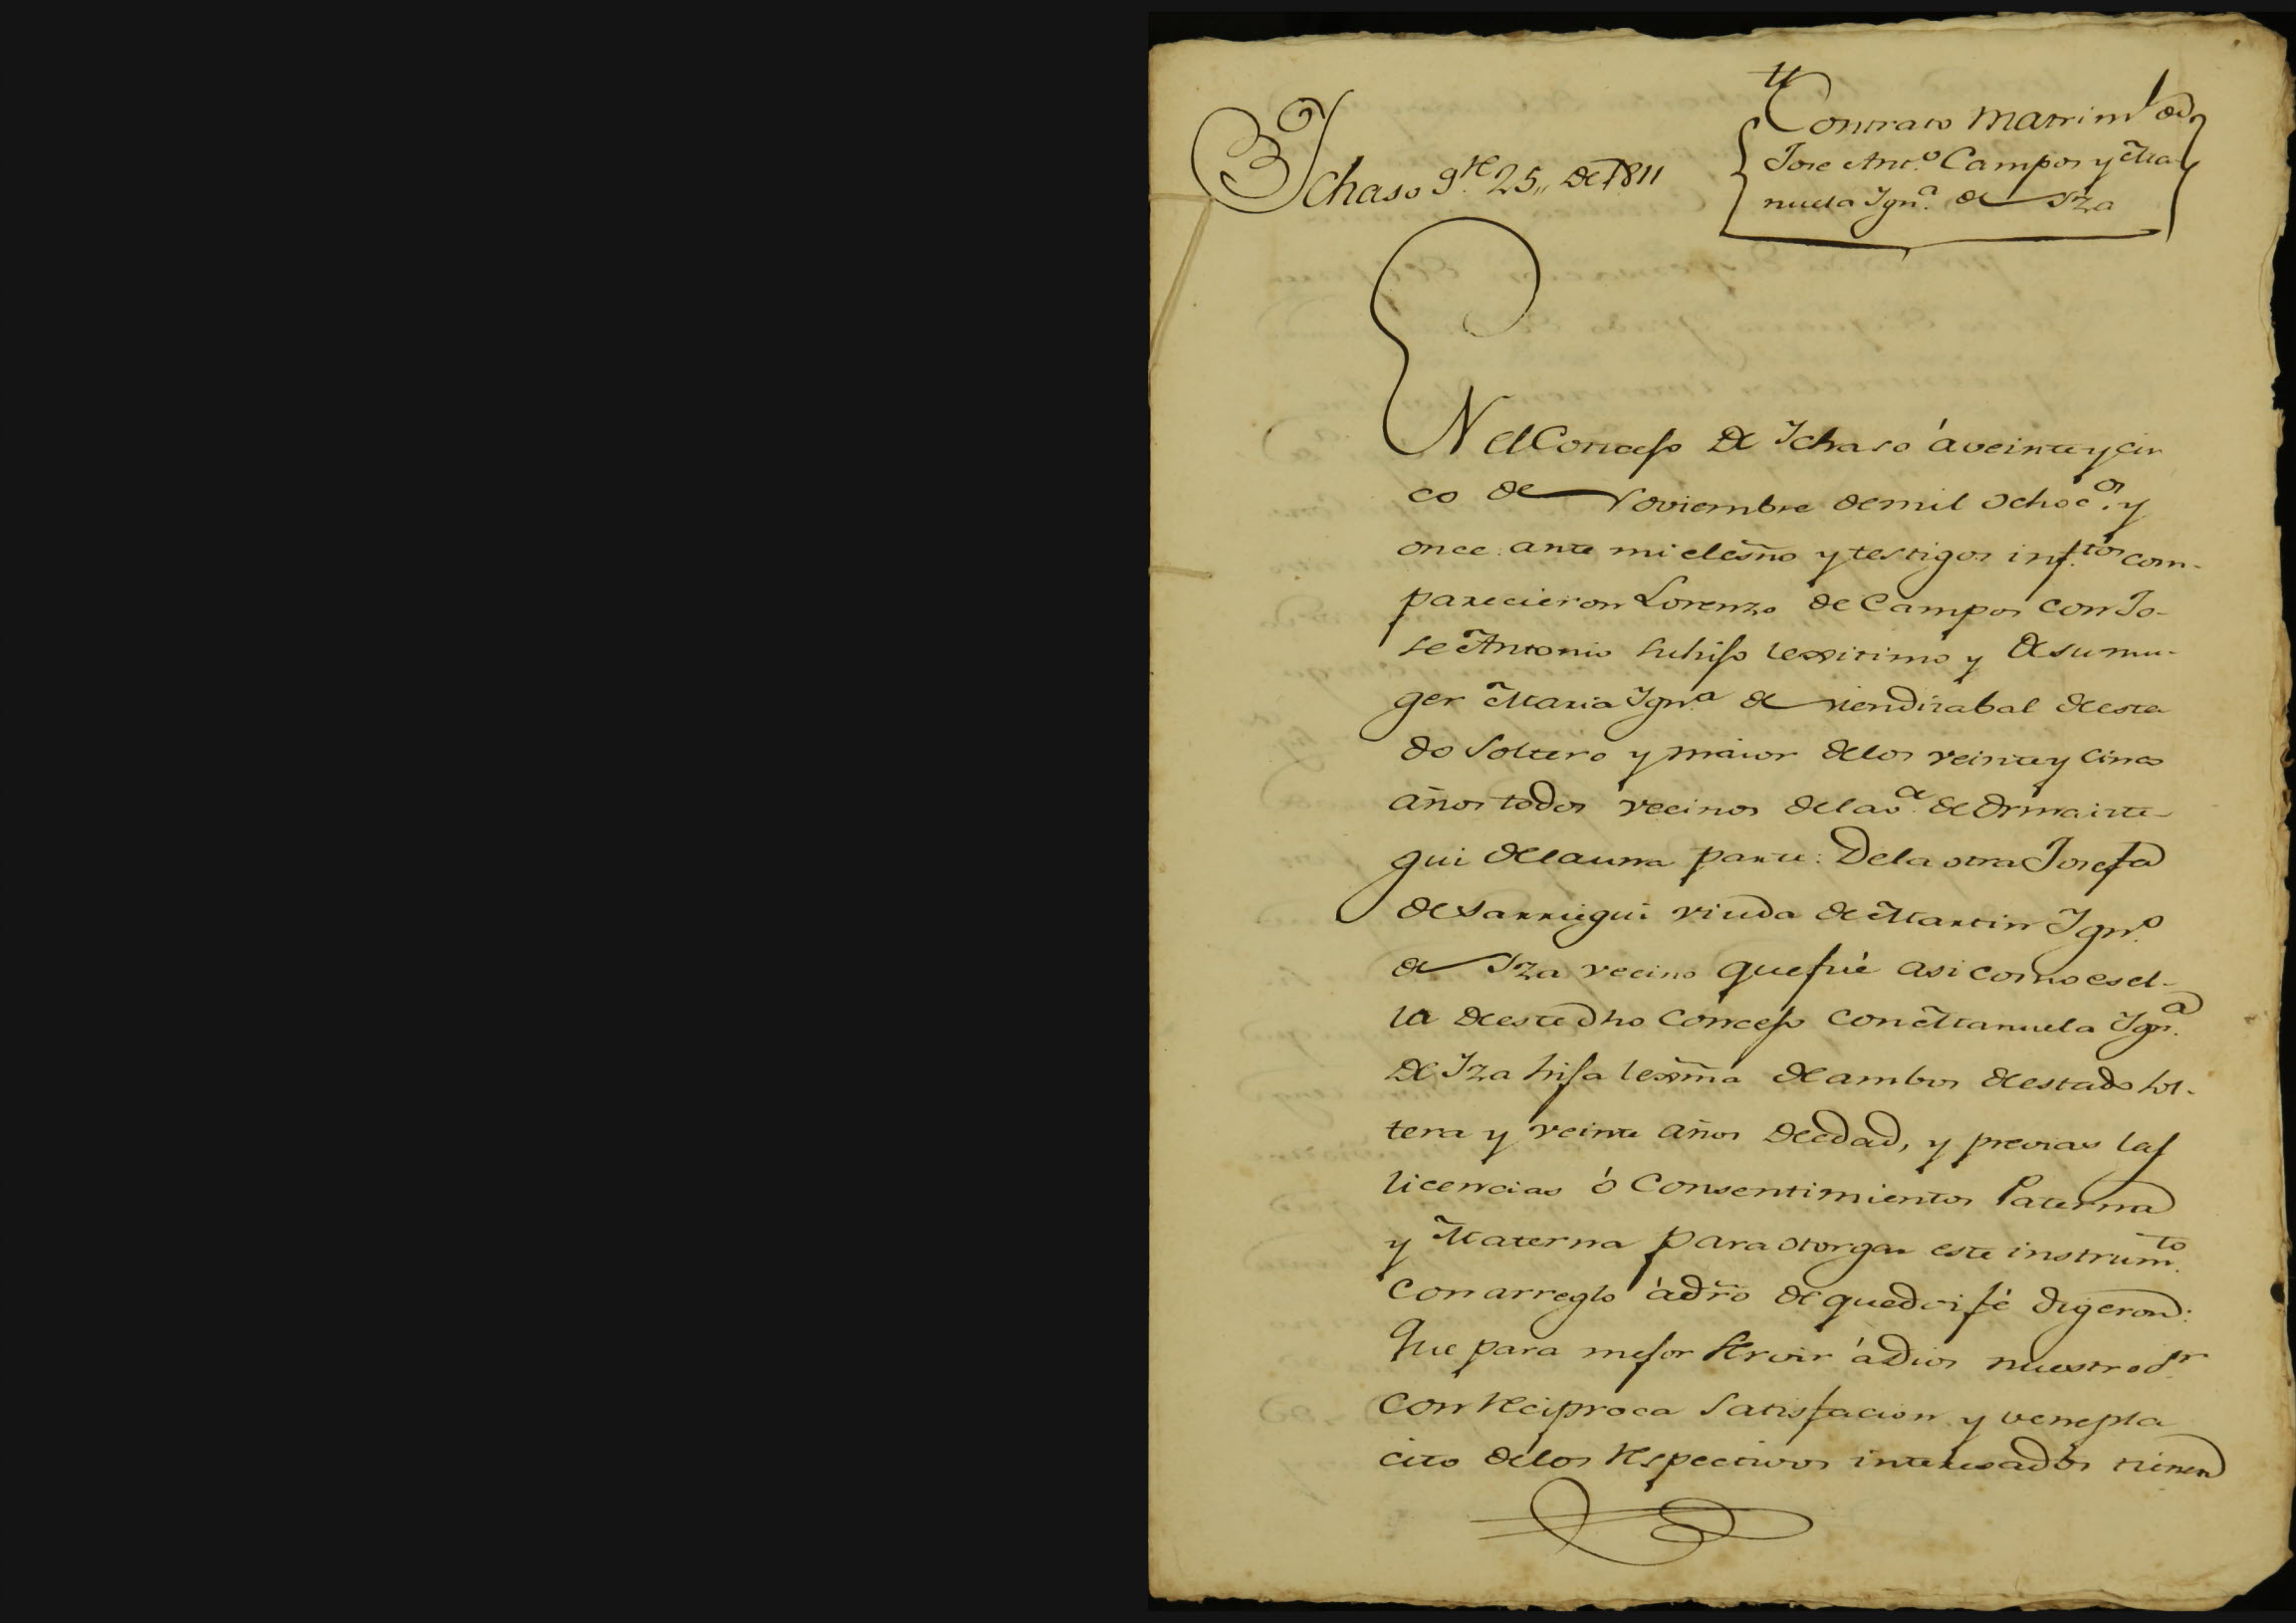 Ychaso 9.re 25,, de 1811
Contrato matrim.l de
Jose Ant.o Campos y Ma
nuela Ygn.a de Yza
EN el Concejo de Ychaso á veinte y cin
co de Noviembre de mil ochoc.os y
once ante mi el esño y testigos inf.tos com-
parecieron Lorenzo de Campos con Jo-
se Antonio su hijo lexitimo y de su mu-
ger Maria Ygn.a de Mendizabal de esta
do soltero y maior de los veinte y cinco
años todos vecinos de la v.a de Ormaizte-
gui de la una parte: De la otra Josefa
de Sarriegui viuda de Martin Ygn.o
de Yza vecino que fué asi como es el-
la de este dho Concejo con Manuela Ygn.a
de Yza hija lexma de ambos de estado sol-
tera y veinte años de edad, y previas las
licencias ó Consentimientos Paterna
y Materna para otorgar este instrum.to
con arreglo á dro de que doi fé digeron:
Que para mejor servir á Dios nuestro S.r
con reciproca satisfacion y venepla
cito de los respectivos interesados tienen